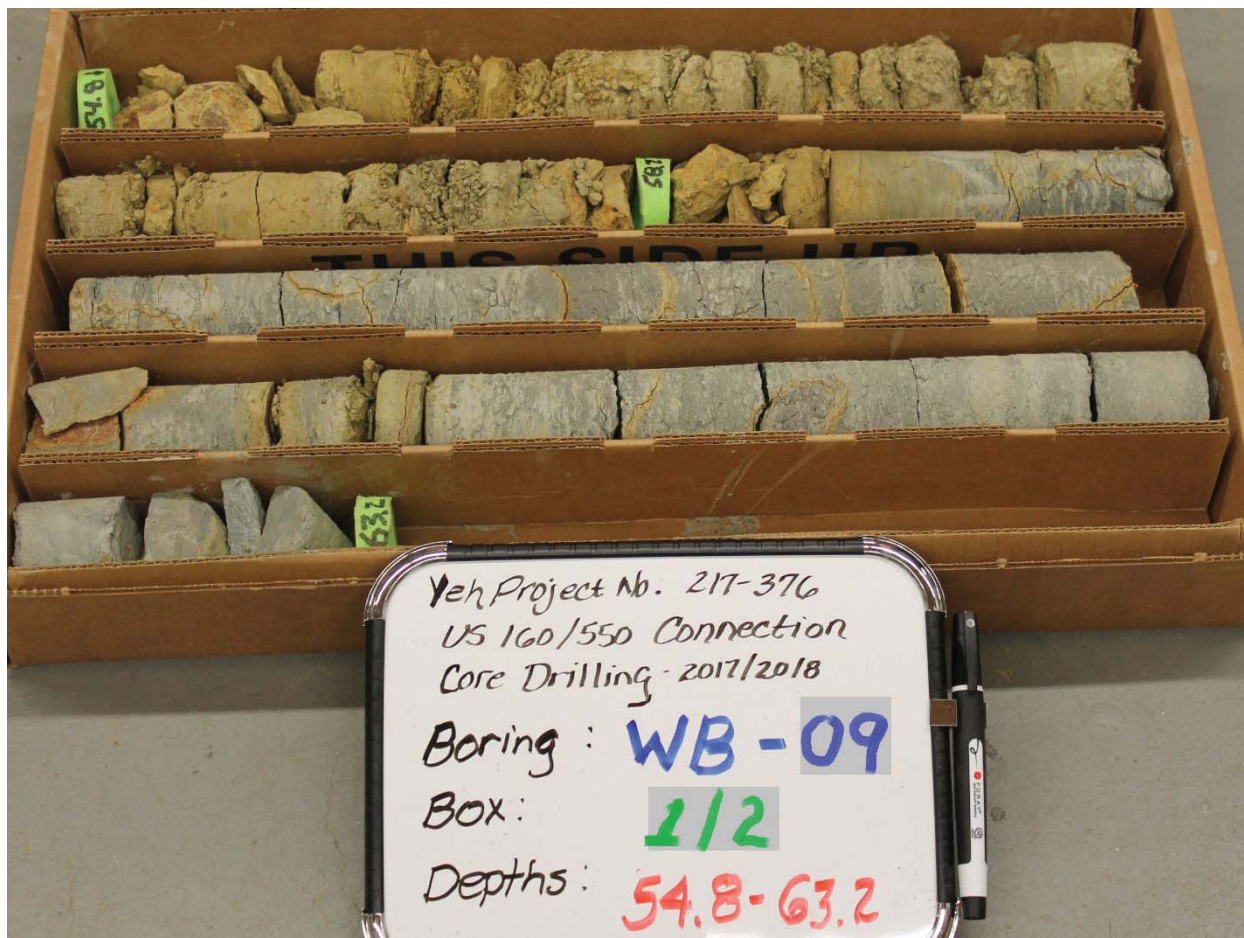 54.8
58.5
THIS SIDE UP
63.2
Yeh Project No. 217-376
US 160/550 Connection
Core Drilling - 2017/2018
Boring : WB - 09
Box: 1/2
Depths: 54.8 - 63.2